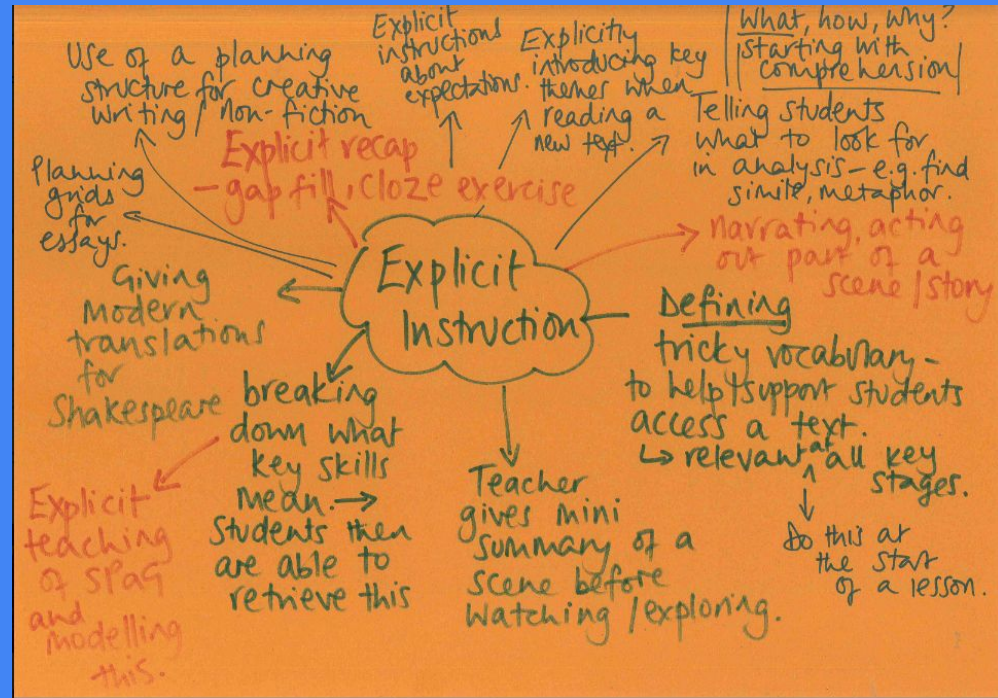 Use of a planning
structure for creative
writing / non-fiction
Explicit
instructions
about
expectations.
Explicitly
introducing key
themes when
reading a
new text.
What, how, why?
starting with
comprehension
Telling students
what to look for
in analysis - e.g. find
simile, metaphor.
Explicit recap
- gap fill, cloze exercise
Planning
grids
for
essays.
narrating, acting
out part of a
scene / story
Explicit
Instruction
Giving
Modern
translations
for
Shakespeare
Defining
tricky vocabulary -
to help/support students
access a text.
↳ relevant at all key
stages.
Do this at
the start
of a lesson.
breaking
down what
key skills
mean. →
Students then
are able to
retrieve this
Teacher
gives mini
summary of a
scene before
watching / exploring.
Explicit
teaching
of SPaG
and
modelling
this.